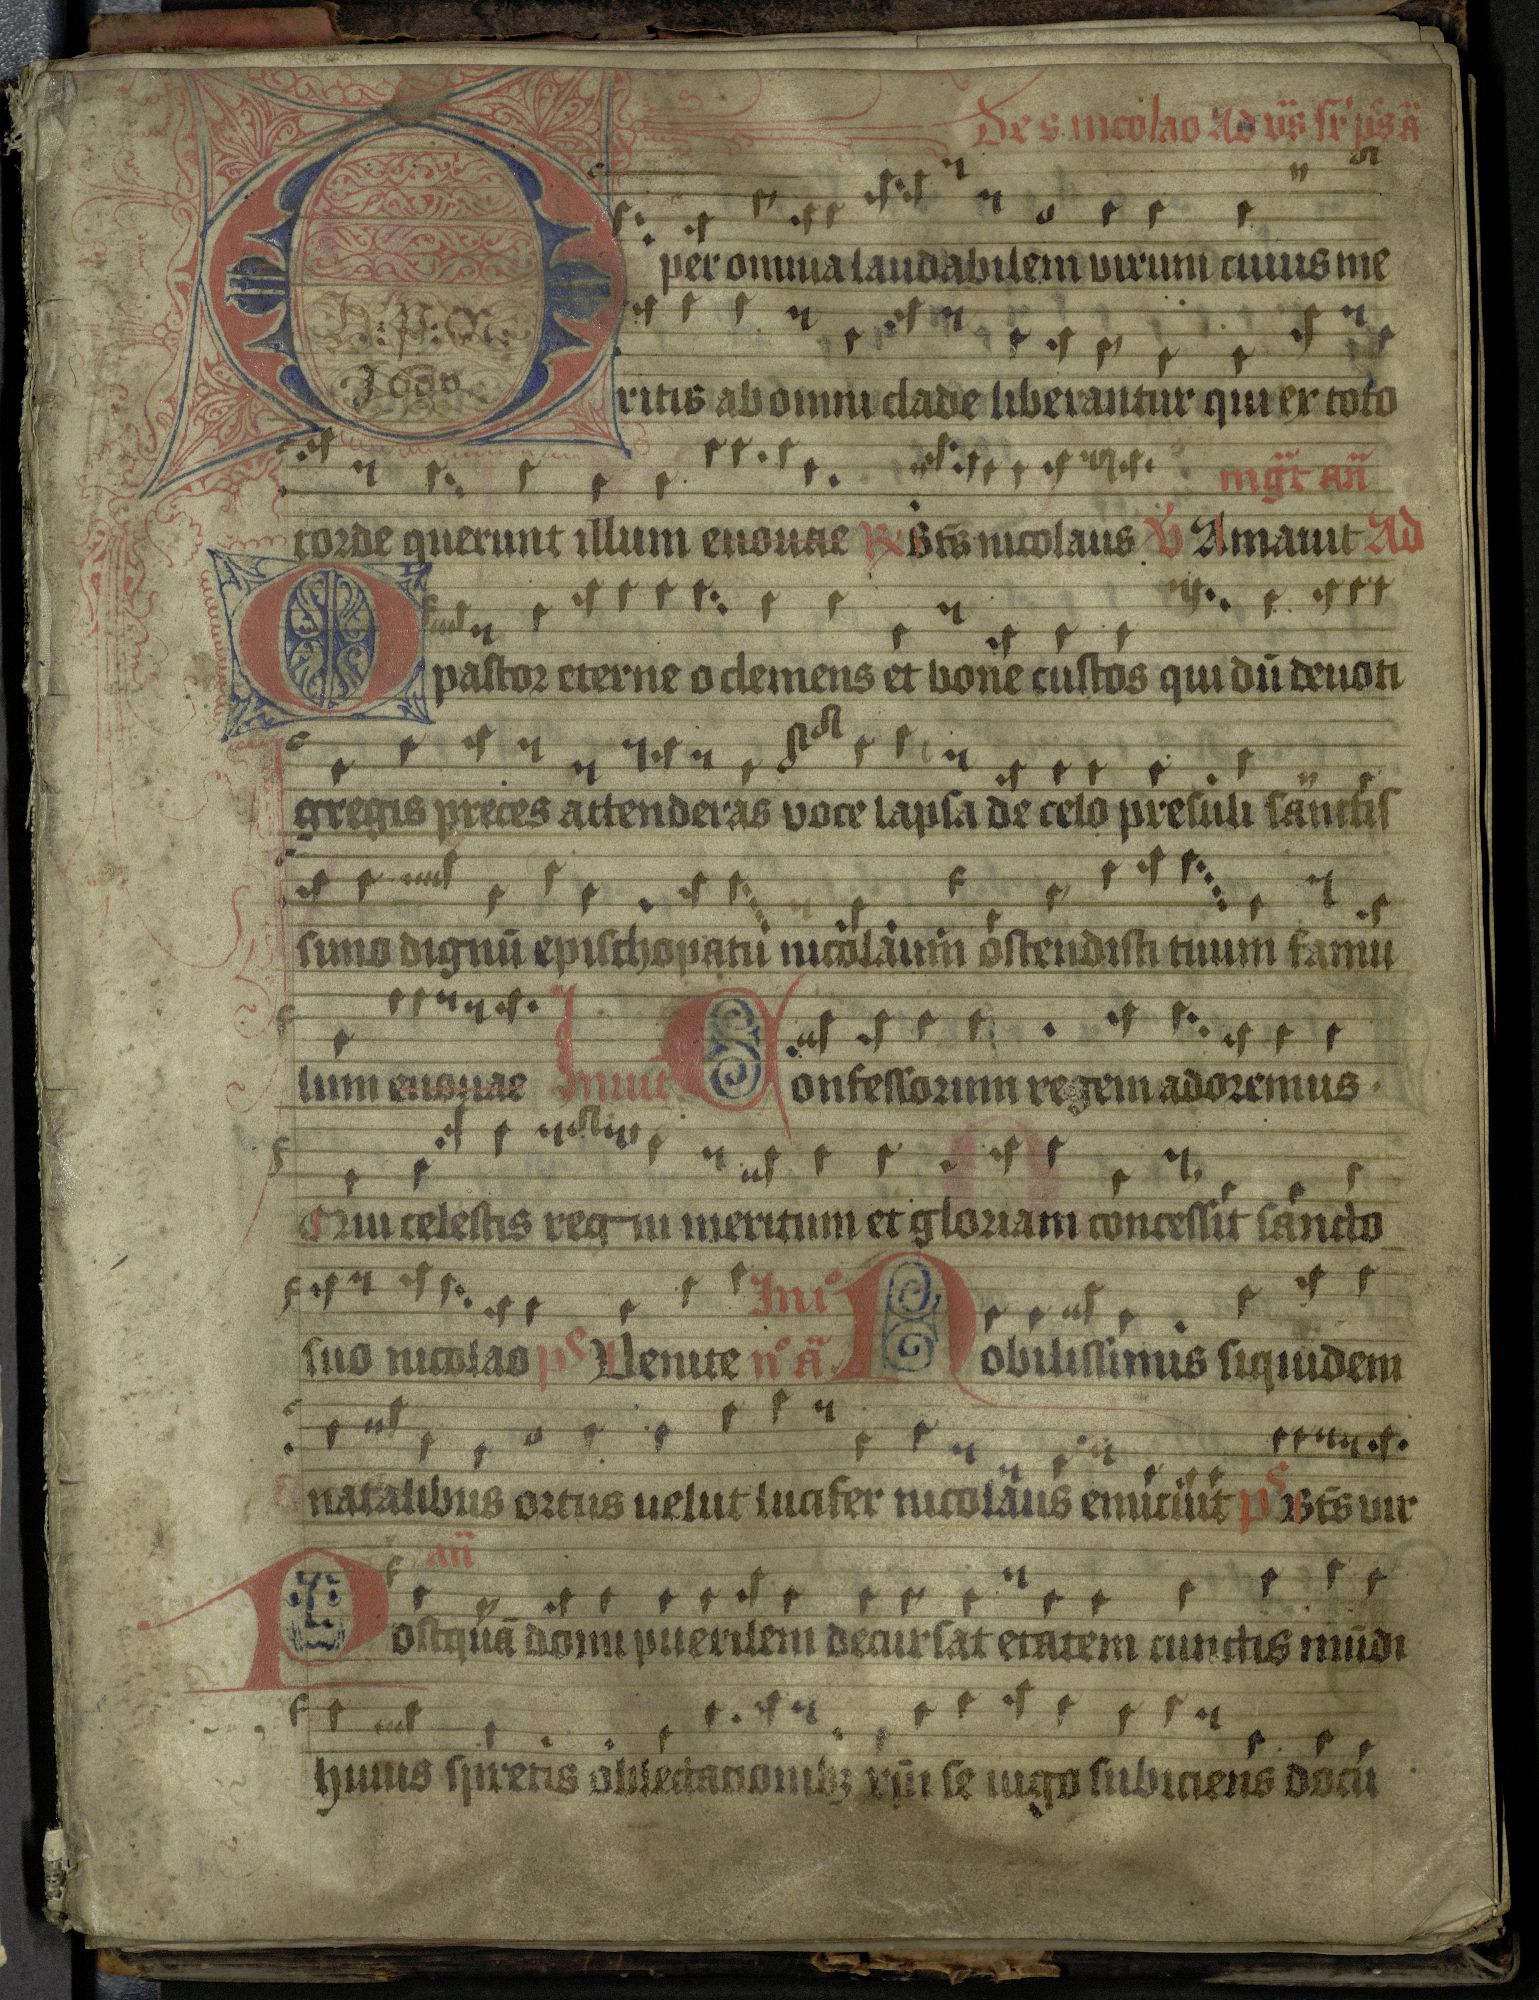 De s. nicolao Ad vs̄ sr̄ ps̄ ā
O per omnia laudabilem virum cuius me
H: P: N:
1600
ritis ab omni clade liberantur qui ex toto
mḡt an̄
corde querunt illum euouae R Bt̄s nicolaus V Amauit Ad
O pastor eterne o clemens et bone custos qui dū deuoti
gregis preces attenderas voce lapsa de celo presuli sanctis
simo dignū epischopatu nicolaum ostendisti tuum famu
lum euouae Inuit Confessorum regem adoremus
Qui celestis regni meritum et gloriam concessit sancto
suo nicolao ps Uenite In i° n° ā Nobilissimis siquidem
natalibus ortus uelut lucifer nicolaus emicuit ps Bt̄s vir
an̄
Postquā domi puerilem decursat etatem cunctis mūdi
huius spretis oblectationibꝫ xp̄i se iugo subiciens docu